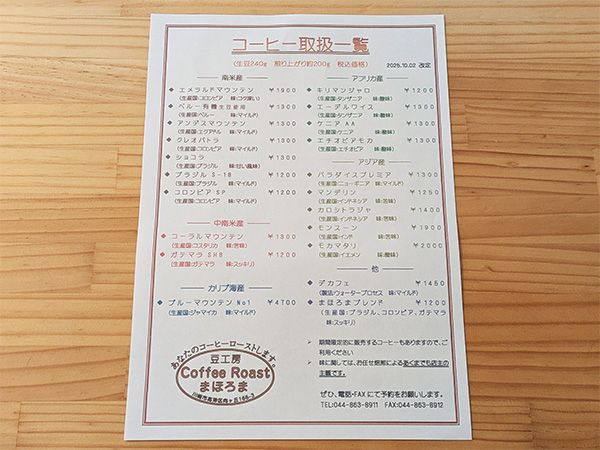 コーヒー取扱一覧
(生豆240g 煎り上がり約200g 税込価格) 2025.10.02 改定
南米産
◆ エメラルドマウンテン ￥1900
(生産国:コロンビア 味:コク深い)
◆ ペルー有機生豆使用 ￥1300
(生産国:ペルー 味:マイルド)
◆ アンデスマウンテン ￥1300
(生産国:エクアドル 味:マイルド)
◆ クレオパトラ ￥1300
(生産国:コロンビア 味:マイルド)
◆ ショコラ ￥1300
(生産国:ブラジル 味:甘い風味)
◆ ブラジル S-18 ￥1200
(生産国:ブラジル 味:マイルド)
◆ コロンビア SP ￥1200
(生産国:コロンビア 味:マイルド)
中南米産
◆ コーラルマウンテン ￥1300
(生産国:コスタリカ 味:苦味)
◆ ガテマラ SHB ￥1200
(生産国:ガテマラ 味:スッキリ)
カリブ海産
◆ ブルーマウンテン No1 ￥4700
(生産国:ジャマイカ 味:マイルド)
あなたのコーヒーローストします。
豆工房
Coffee Roast
まほろま
アフリカ産
◆ キリマンジャロ ￥1200
(生産国:タンザニア 味:酸味)
◆ エーデルワイス ￥1300
(生産国:タンザニア 味:酸味)
◆ ケニア AA ￥1300
(生産国:ケニア 味:酸味)
◆ エチオピアモカ ￥1300
(生産国:エチオピア 味:酸味)
アジア産
◆ パラダイスプレミア ￥1300
(生産国:ニューギニア 味:マイルド)
◆ マンデリン ￥1250
(生産国:インドネシア 味:苦味)
◆ カロシトラジャ ￥1400
(生産国:インドネシア 味:苦味)
◆ モンスーン ￥1900
(生産国:インド 味:苦味)
◆ モカマタリ ￥2000
(生産国:イエメン 味:酸味)
他
◆ デカフェ ￥1450
(製法:ウォータープロセス 味:マイルド)
◆ まほろまブレンド ￥1200
(生産国:ブラジル、コロンビア、ガテマラ
味:スッキリ)
➢ 期間限定的に販売するコーヒーもありますので、ご
利用ください
➢ 味に関しては、お任せ焙煎によるあくまでも店主の
主観です。
ぜひ、電話・FAXにて予約をお願いします。
TEL:044-863-8911 FAX:044-863-8912